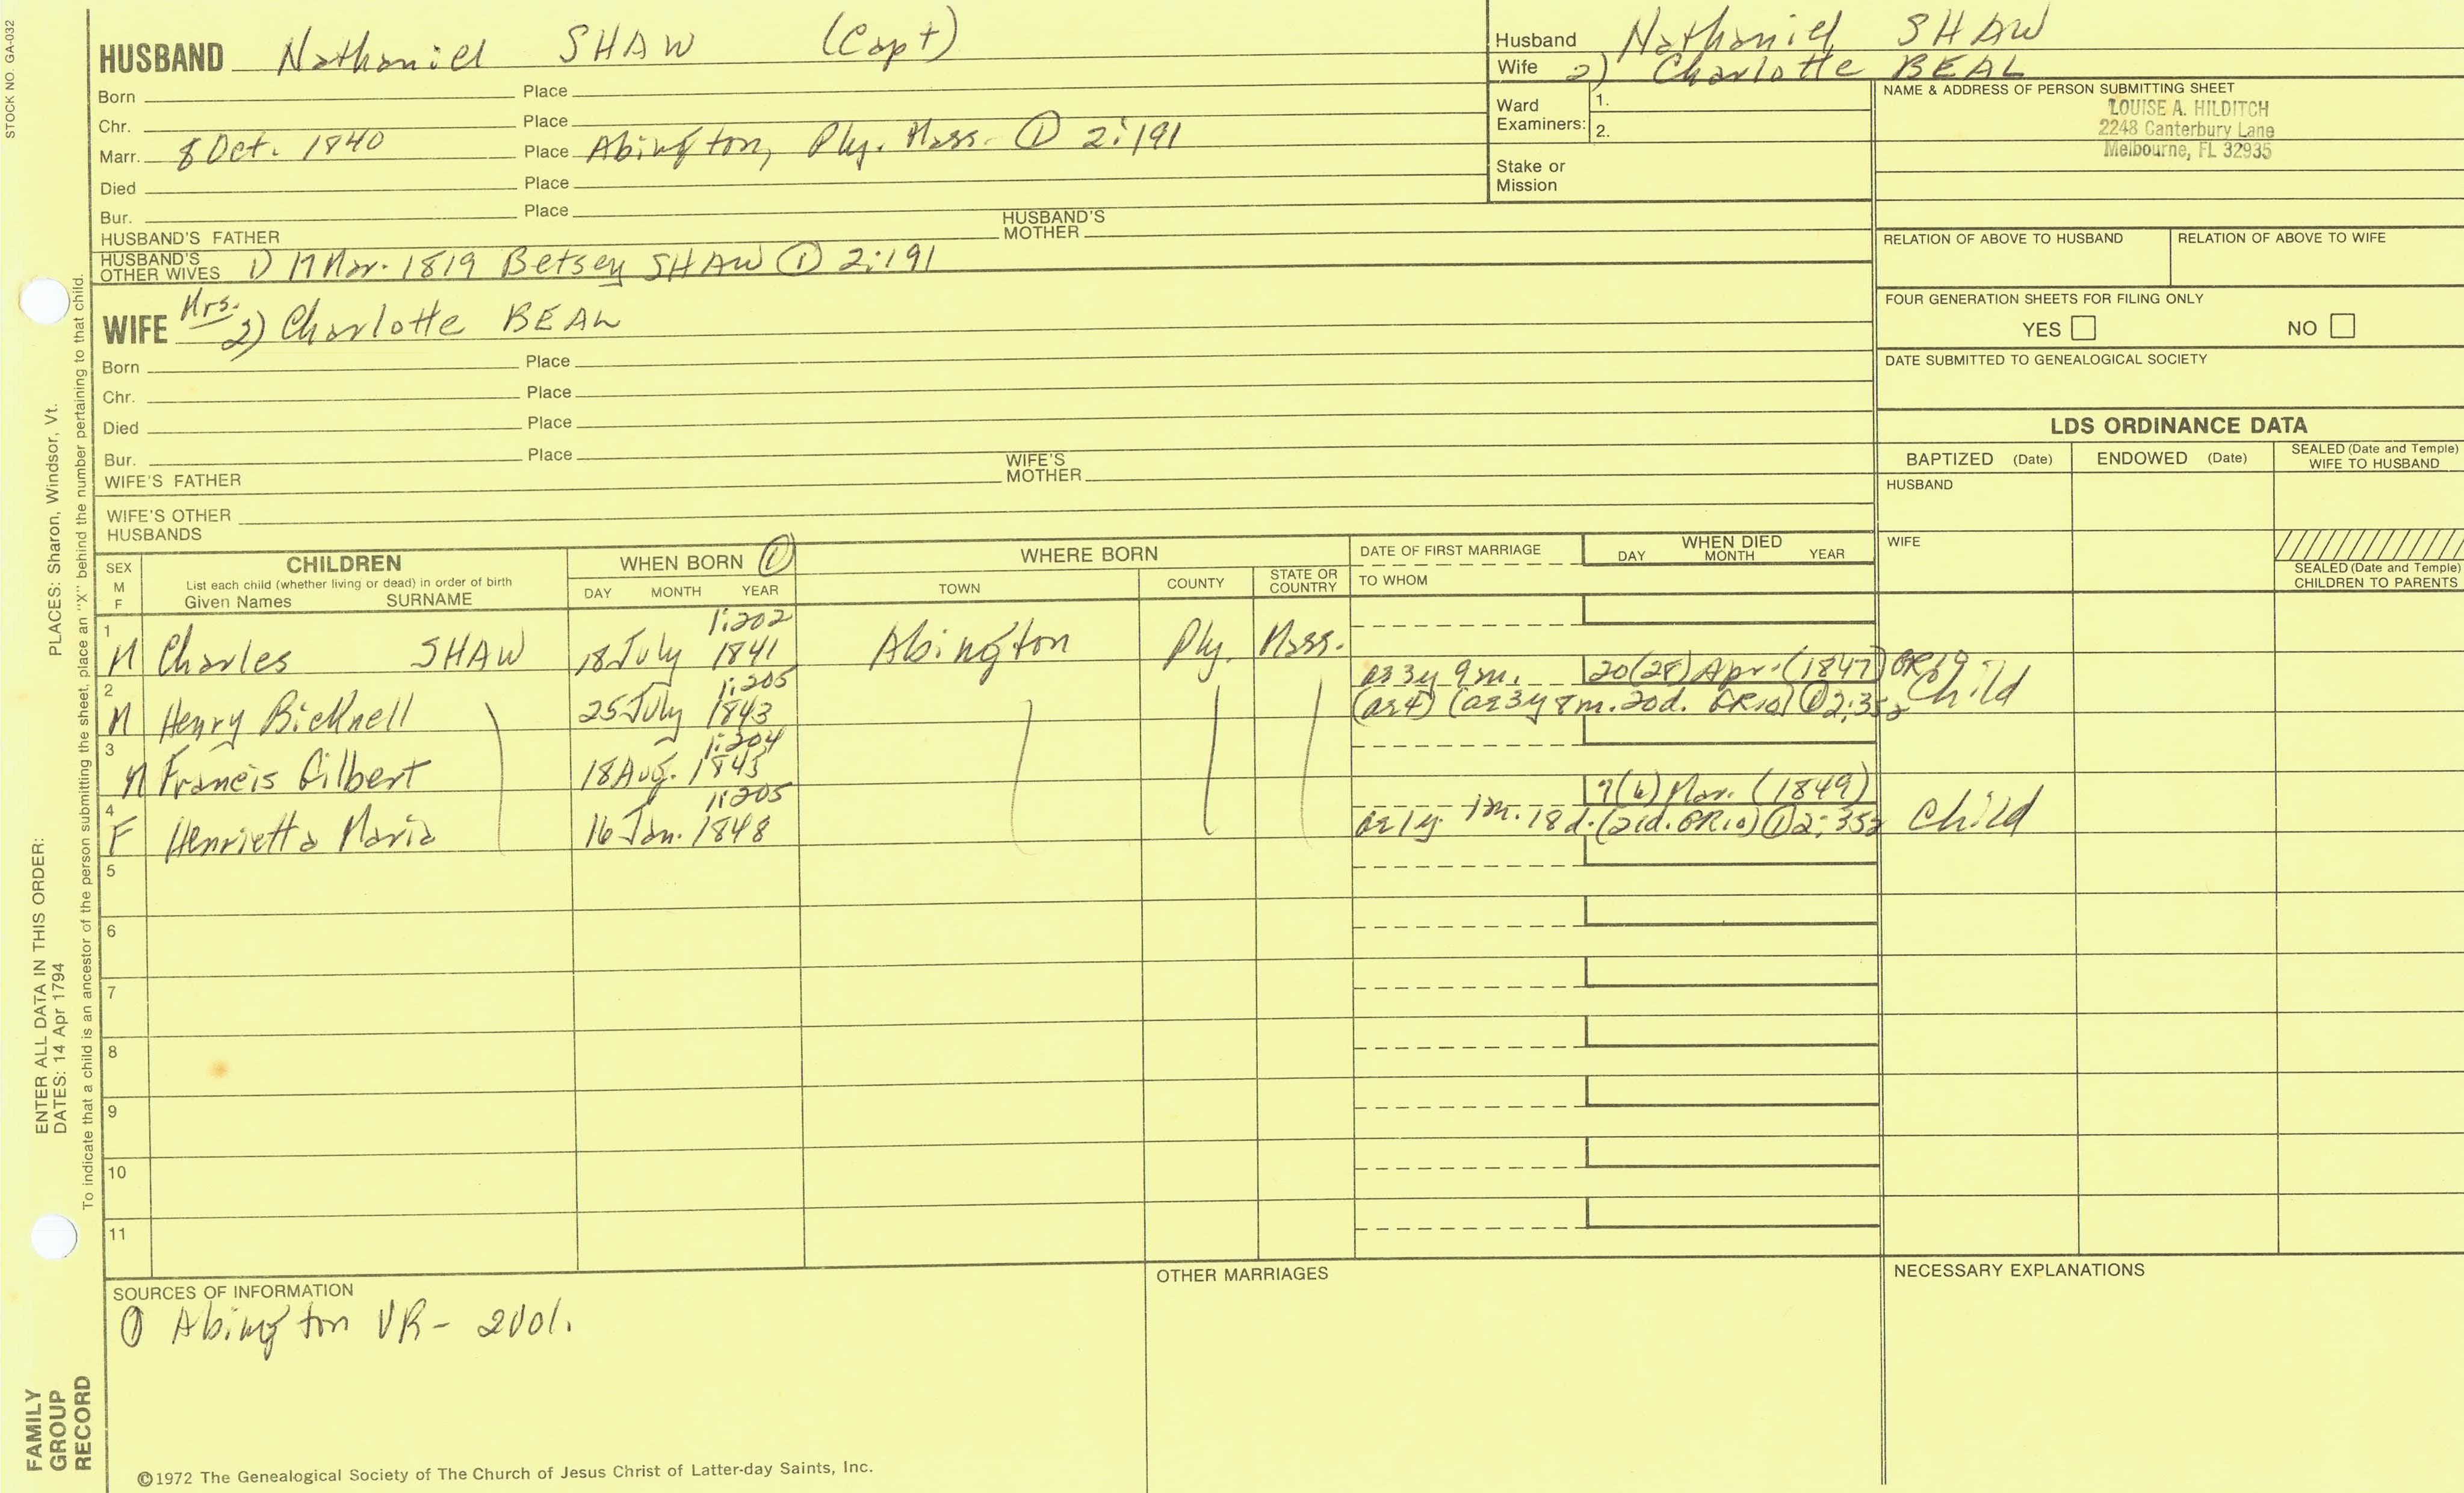 STOCK NO. GA-032
HUSBAND Nathaniel SHAW (Capt)
Born Place
Chr. Place
Marr. 8 Oct. 1840 Place Abington, Ply. Mass. ① 2:191
Died Place
Bur. Place
HUSBAND'S FATHER HUSBAND'S MOTHER
HUSBAND'S OTHER WIVES 1) 17 Mar. 1819 Betsey SHAW ① 2:191
WIFE Mrs. 2) Charlotte BEAL
Born Place
Chr. Place
Died Place
Bur. Place
WIFE'S FATHER WIFE'S MOTHER
WIFE'S OTHER HUSBANDS
Husband Nathaniel SHAW
Wife 2) Charlotte BEAL
Ward Examiners: 1.
2.
Stake or Mission
NAME & ADDRESS OF PERSON SUBMITTING SHEET
LOUISE A. HILDITCH
2248 Canterbury Lane
Melbourne, FL 32935
RELATION OF ABOVE TO HUSBAND RELATION OF ABOVE TO WIFE
FOUR GENERATION SHEETS FOR FILING ONLY
YES NO
DATE SUBMITTED TO GENEALOGICAL SOCIETY
LDS ORDINANCE DATA
BAPTIZED (Date) ENDOWED (Date) SEALED (Date and Temple) WIFE TO HUSBAND
HUSBAND
WIFE
SEALED (Date and Temple) CHILDREN TO PARENTS
SEX M F
CHILDREN
List each child (whether living or dead) in order of birth
Given Names SURNAME
WHEN BORN ①
DAY MONTH YEAR
WHERE BORN
TOWN COUNTY STATE OR COUNTRY
DATE OF FIRST MARRIAGE
TO WHOM
WHEN DIED
DAY MONTH YEAR
1:202
1 M Charles SHAW 18 July 1841 Abington Ply. Mass.
1:205 20(28) Apr. (1847)
2 M Henry Bicknell 25 July 1843 ae 3y 9m. (ae 4) (ae 3y 8m. 20d. GR10) ① 2:352 Child
1:204
3 M Francis Gilbert 18 Aug. 1845
1:205 (6) Mar. (1849)
4 F Henrietta Maria 16 Jan. 1848 ae 1y. 1m. 18d. (21d. GR10) ① 2:352 Child
5
6
7
8
9
10
11
SOURCES OF INFORMATION
① Abington VR - 2 Vol.
OTHER MARRIAGES
NECESSARY EXPLANATIONS
©1972 The Genealogical Society of The Church of Jesus Christ of Latter-day Saints, Inc.
PLACES: Sharon, Windsor, Vt.
ENTER ALL DATA IN THIS ORDER:
DATES: 14 Apr 1794
To indicate that a child is an ancestor of the person submitting the sheet, place an "X" behind the number pertaining to that child.
FAMILY GROUP RECORD